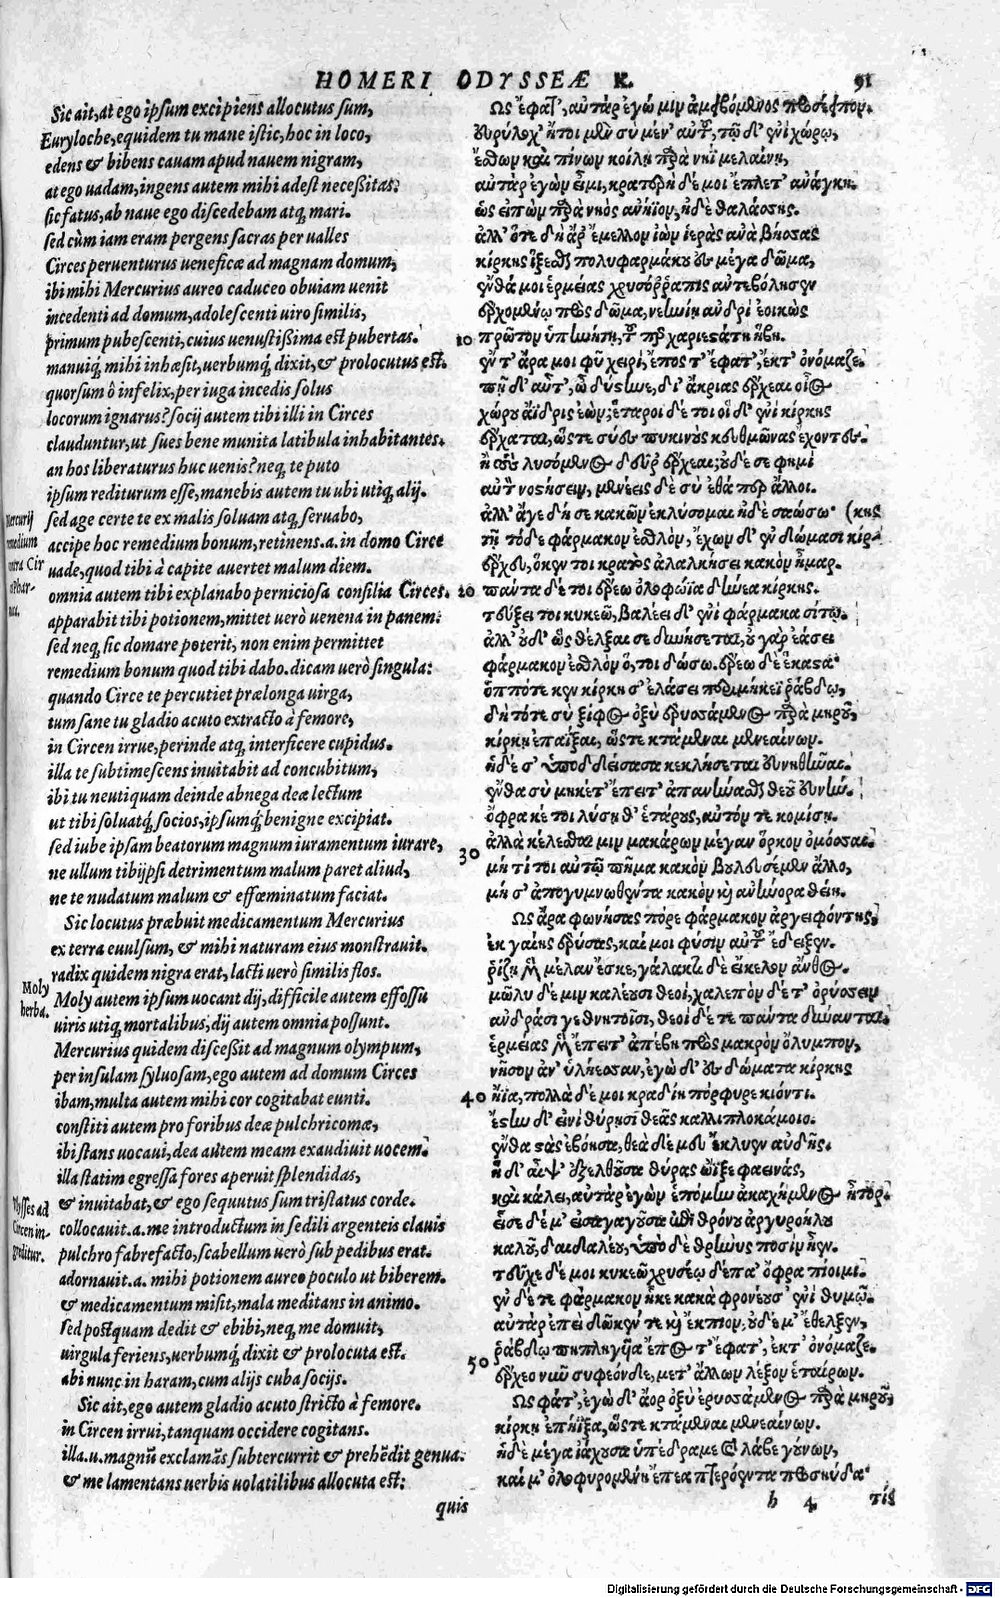 HOMERI ODYSSEÆ K.
91
Sic ait, at ego ipsum excipiens allocutus sum,
Euryloche, equidem tu mane istic, hoc in loco,
edens & bibens cauam apud nauem nigram,
at ego uadam, ingens autem mihi adest necessitas:
sic fatus, ab naue ego discedebam atq; mari.
sed cùm iam eram pergens sacras per ualles
Circes peruenturus ueneficæ ad magnam domum,
ibi mihi Mercurius aureo caduceo obuiam uenit
incedenti ad domum, adolescenti uiro similis,
primum pubescenti, cuius uenustissima est pubertas:
manuiq; mihi inhæsit, uerbumq; dixit, & prolocutus est.
quorsum ô infelix, per iuga incedis solus
locorum ignarus? socij autem tibi illi in Circes
clauduntur, ut sues bene munita latibula inhabitantes.
an hos liberaturus huc uenis? neq; te puto
ipsum rediturum esse, manebis autem tu ubi utiq; alij.
sed age certe te ex malis soluam atq; seruabo,
accipe hoc remedium bonum, retinens .a. in domo Circe
uade, quod tibi à capite auertet malum diem.
omnia autem tibi explanabo perniciosa consilia Circes.
apparabit tibi potionem, mittet uerò uenena in panem:
sed neq; sic domare poterit, non enim permittet
remedium bonum quod tibi dabo. dicam uerò singula:
quando Circe te percutiet prælonga uirga,
tum sane tu gladio acuto extracto à femore,
in Circen irrue, perinde atq; interficere cupidus.
illa te subtimescens inuitabit ad concubitum,
ibi tu neutiquam deinde abnega deæ lectum
ut tibi soluatq; socios, ipsumq; benigne excipiat.
sed iube ipsam beatorum magnum iuramentum iurare,
ne ullum tibijpsi detrimentum malum paret aliud,
ne te nudatum malum & effœminatum faciat.
Sic locutus præbuit medicamentum Mercurius
ex terra euulsum, & mihi naturam eius monstrauit.
radix quidem nigra erat, lacti uerò similis flos.
Moly autem ipsum uocant dij, difficile autem effossu
uiris utiq; mortalibus, dij autem omnia possunt.
Mercurius quidem discessit ad magnum olympum,
per insulam syluosam, ego autem ad domum Circes
ibam, multa autem mihi cor cogitabat eunti.
constiti autem pro foribus deæ pulchricomæ,
ibi stans uocaui, dea autem meam exaudiuit uocem:
illa statim egressa fores aperuit splendidas,
& inuitabat, & ego sequutus sum tristatus corde.
collocauit .a. me introductum in sedili argenteis clauis
pulchro fabrefacto, scabellum uerò sub pedibus erat.
adornauit .a. mihi potionem aureo poculo ut biberem.
& medicamentum misit, mala meditans in animo.
sed postquam dedit & ebibi, neq; me domuit,
uirgula feriens, uerbumq; dixit & prolocuta est.
abi nunc in haram, cum alijs cuba socijs.
Sic ait, ego autem gladio acuto stricto à femore.
in Circen irrui, tanquam occidere cogitans.
illa .u. magnũ exclamãs subtercurrit & prehẽdit genua:
& me lamentans uerbis uolatilibus allocuta est:
quis
Mercurij
remedium
Moly
herba.
Vlysses ad
Circen in-
greditur.
Ως ἔφατ', αὐτὰρ ἐγώ μιν ἀμειβόμενος προσέειπον.
Εὐρύλοχ' ἤτοι μὲν σὺ μέν' αὐτοῦ τῷ δ' ἐνὶ χώρῳ,
ἔσθων καὶ πίνων κοίλῃ παρὰ νηῒ μελαίνῃ,
αὐτὰρ ἐγὼν εἶμι, κρατερὴ δέ μοι ἔπλετ' ἀνάγκη.
ὣς εἰπὼν παρὰ νηὸς ἀνήϊον, ἠδὲ θαλάσσης.
ἀλλ' ὅτε δὴ ἄρ' ἔμελλον ἰὼν ἱερὰς ἀνὰ βήσσας
κίρκης ἵξεσθαι πολυφαρμάκου ἐς μέγα δῶμα,
ἔνθά μοι ἑρμείας χρυσόρραπις ἀντεβόλησεν
ἐρχομένῳ πρὸς δῶμα, νεηνίῃ ἀνδρὶ ἐοικὼς
10 πρῶτον ὑπηνήτῃ, τοῦ περ χαριεστάτη ἥβη.
ἔν τ' ἄρα μοι φῦ χειρί, ἔπος τ' ἔφατ', ἔκ τ' ὀνόμαζε.
πῇ δ' αὖτ', ὦ δύστηνε, δι' ἄκριας ἔρχεαι οἶος
χώρου ἄϊδρις ἐών; ἕταροι δέ τοι οἵδ' ἐνὶ κίρκης
ἔρχαται, ὥστε σύες πυκινοὺς κευθμῶνας ἔχοντες.
ἦ τοὺς λυσόμενος δεῦρ' ἔρχεαι; οὐδέ σε φημὶ
αὐτὸν νοστήσειν, μενέεις δὲ σὺ ἔνθά περ ἄλλοι.
ἀλλ' ἄγε δή σε κακῶν ἐκλύσομαι ἠδὲ σαώσω· (κης
τῆ τόδε φάρμακον ἐσθλόν, ἔχων δ' ἐν δώμασι κίρ-
ἔρχευ, ὅκεν τοι κρατὸς ἀλαλκῃσι κακὸν ἦμαρ.
20 πάντα δέ τοι ἐρέω ὀλοφώϊα δήνεα κίρκης.
τεύξει τοι κυκεῶ, βαλέει δ' ἐνὶ φάρμακα σίτῳ.
ἀλλ' οὐδ' ὣς θέλξαι σε δυνήσεται, οὐ γὰρ ἐάσει
φάρμακον ἐσθλὸν ὅ, τοι δώσω. ἐρέω δὲ ἕκαστα·
ὁππότε κεν κίρκη σ' ἐλάσει περιμήκεϊ ῥάβδῳ,
δὴ τότε σὺ ξίφος ὀξὺ ἐρυσσάμενος παρὰ μηροῦ,
κίρκῃ ἐπαῖξαι, ὥστε κτάμεναι μενεαίνων.
ἡ δέ σ' ὑποδδείσασα κελήσεται εὐνηθῆναι.
ἔνθα σὺ μηκέτ' ἔπειτ' ἀπανήνασθαι θεοῦ εὐνήν.
ὄφρα κέ τοι λύσῃ θ' ἑτάρους, αὐτόν τε κομίσῃ.
30 ἀλλὰ κέλεσθαί μιν μακάρων μέγαν ὅρκον ὀμόσσαι.
μή τί τοι αὐτῷ πῆμα κακὸν βουλευσέμεν ἄλλο,
μή σ' ἀπογυμνωθέντα κακὸν κỳ ἀνήνορα θείη.
Ως ἄρα φωνήσας πόρε φάρμακον ἀργειφόντης,
ἐκ γαίης ἐρύσας, καί μοι φύσιν αὐτοῦ ἔδειξεν.
ῥίζῃ μὲν μέλαν ἔσκε, γάλακτι δὲ εἴκελον ἄνθος.
μῶλυ δέ μιν καλέουσι θεοί, χαλεπὸν δέ τ' ὀρύσσειν
ἀνδράσι γε θνητοῖσι, θεοὶ δέ τε πάντα δύνανται.
ἑρμείας μὲν ἔπειτ' ἀπέβη πρὸς μακρὸν ὄλυμπον,
νῆσον ἀν' ὑλήεσσαν, ἐγὼ δ' ἐς δώματα κίρκης
40 ἤϊα, πολλὰ δέ μοι κραδίη πόρφυρε κιόντι.
ἔστην δ' εἰνὶ θύρῃσι θεᾶς καλλιπλοκάμοιο.
ἔνθα στὰς ἐβόησα, θεὰ δέ μευ ἔκλυεν αὐδῆς.
ἡ δ' αἶψ' ἐξελθοῦσα θύρας ὤϊξε φαεινάς,
καὶ κάλει, αὐτὰρ ἐγὼν ἑπόμην ἀκαχήμενος ἦτορ.
εἷσε δέ μ' εἰσαγαγοῦσα ἐπὶ θρόνου ἀργυροήλου
καλοῦ, δαιδαλέου, ὑπὸ δὲ θρῆνυς ποσὶν ἦεν.
τεῦχε δέ μοι κυκεῶ χρυσέῳ δέπα' ὄφρα πίοιμι.
ἐν δέ τε φάρμακον ἧκε κακὰ φρονέουσ' ἐνὶ θυμῷ.
αὐτὰρ ἐπεὶ δῶκέν τε κỳ ἔκπιον, οὐδέ μ' ἔθελξεν,
50 ῥάβδῳ πεπληγυῖα ἔπος τ' ἔφατ', ἔκ τ' ὀνόμαζε.
ἔρχεο νῦν συφεόνδε, μετ' ἄλλων λέξον ἑταίρων.
Ως φάτ', ἐγὼ δ' ἄορ ὀξὺ ἐρυσσάμενος παρὰ μηροῦ,
κίρκῃ ἐπήϊξα, ὥστε κτάμεναι μενεαίνων.
ἡ δὲ μέγα ἰάχουσα ὑπέδραμε καὶ λάβε γούνων,
καί μ' ὀλοφυρομένη ἔπεα πτερόεντα προσηύδα·
h 4 τίς
Digitalisierung gefördert durch die Deutsche Forschungsgemeinschaft - DFG